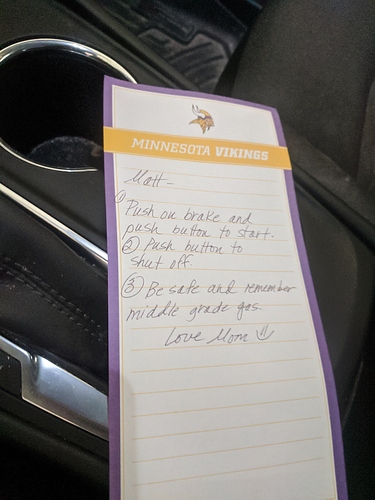 MINNESOTA VIKINGS
Matt -
① Push on brake and
push button to start.
② Push button to
shut off.
③ Be safe and remember
middle grade gas.
Love Mom